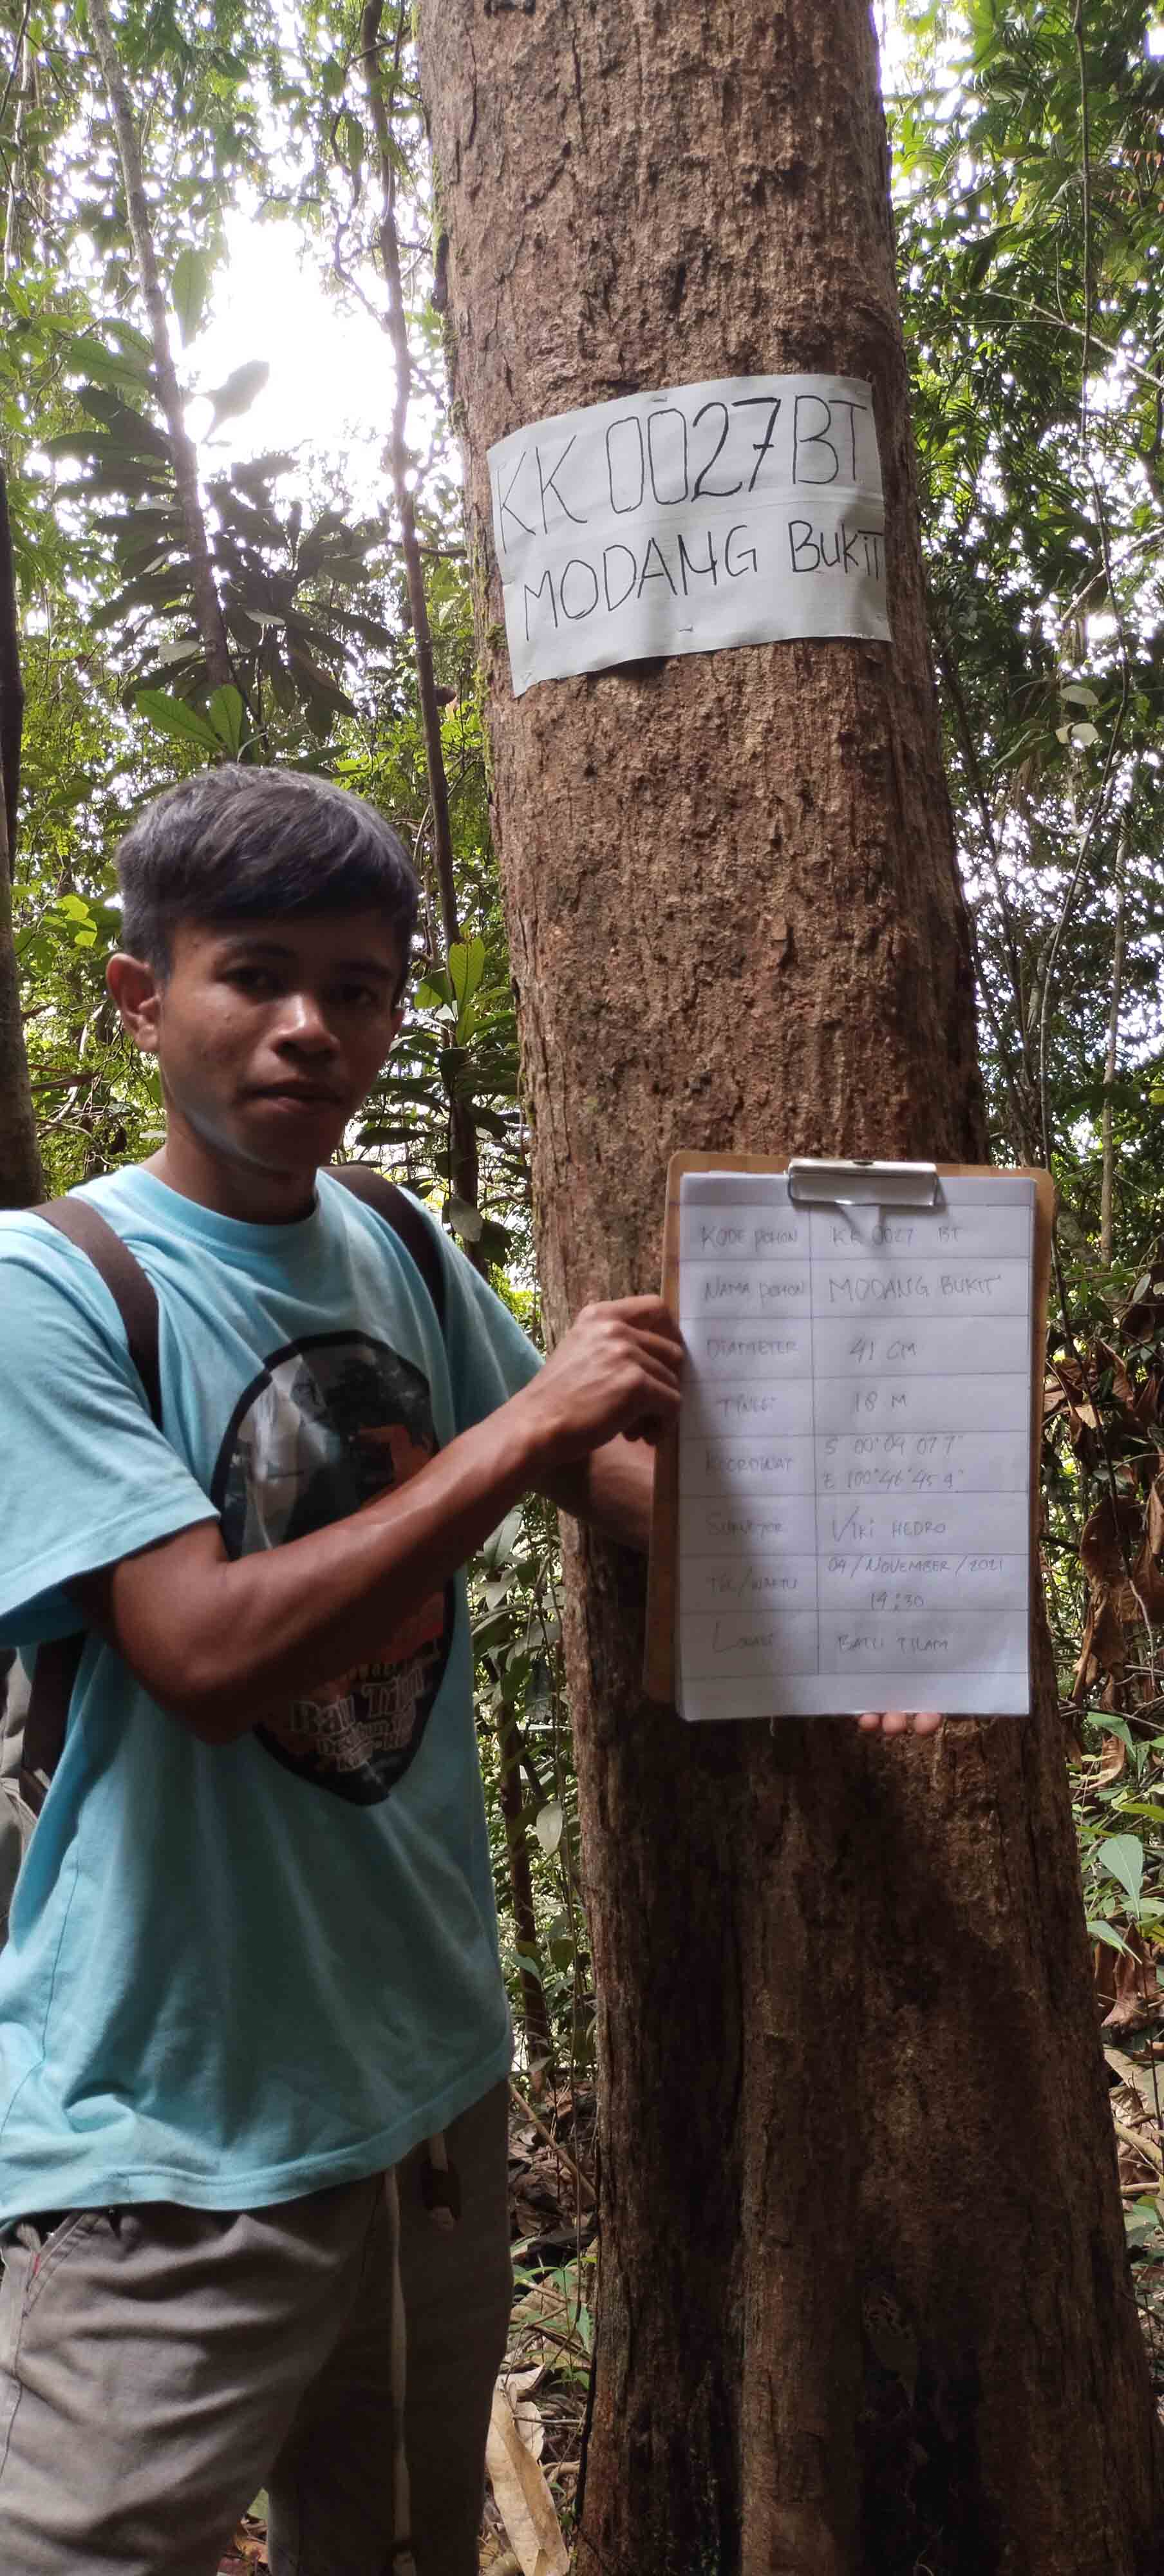 KK 0027 BT
MODANG BUKIT
KODE POHON KK 0027 BT
NAMA POHON MODANG BUKIT
DIAMETER 41 CM
TINGGI 18 M
KOORDINAT S 00°09'07.7"
E 100°46'45.9"
SURVEYOR VIKI HEDRO
TGL/WAKTU 09/NOVEMBER/2021
14:30
LOKASI BATU TILAM